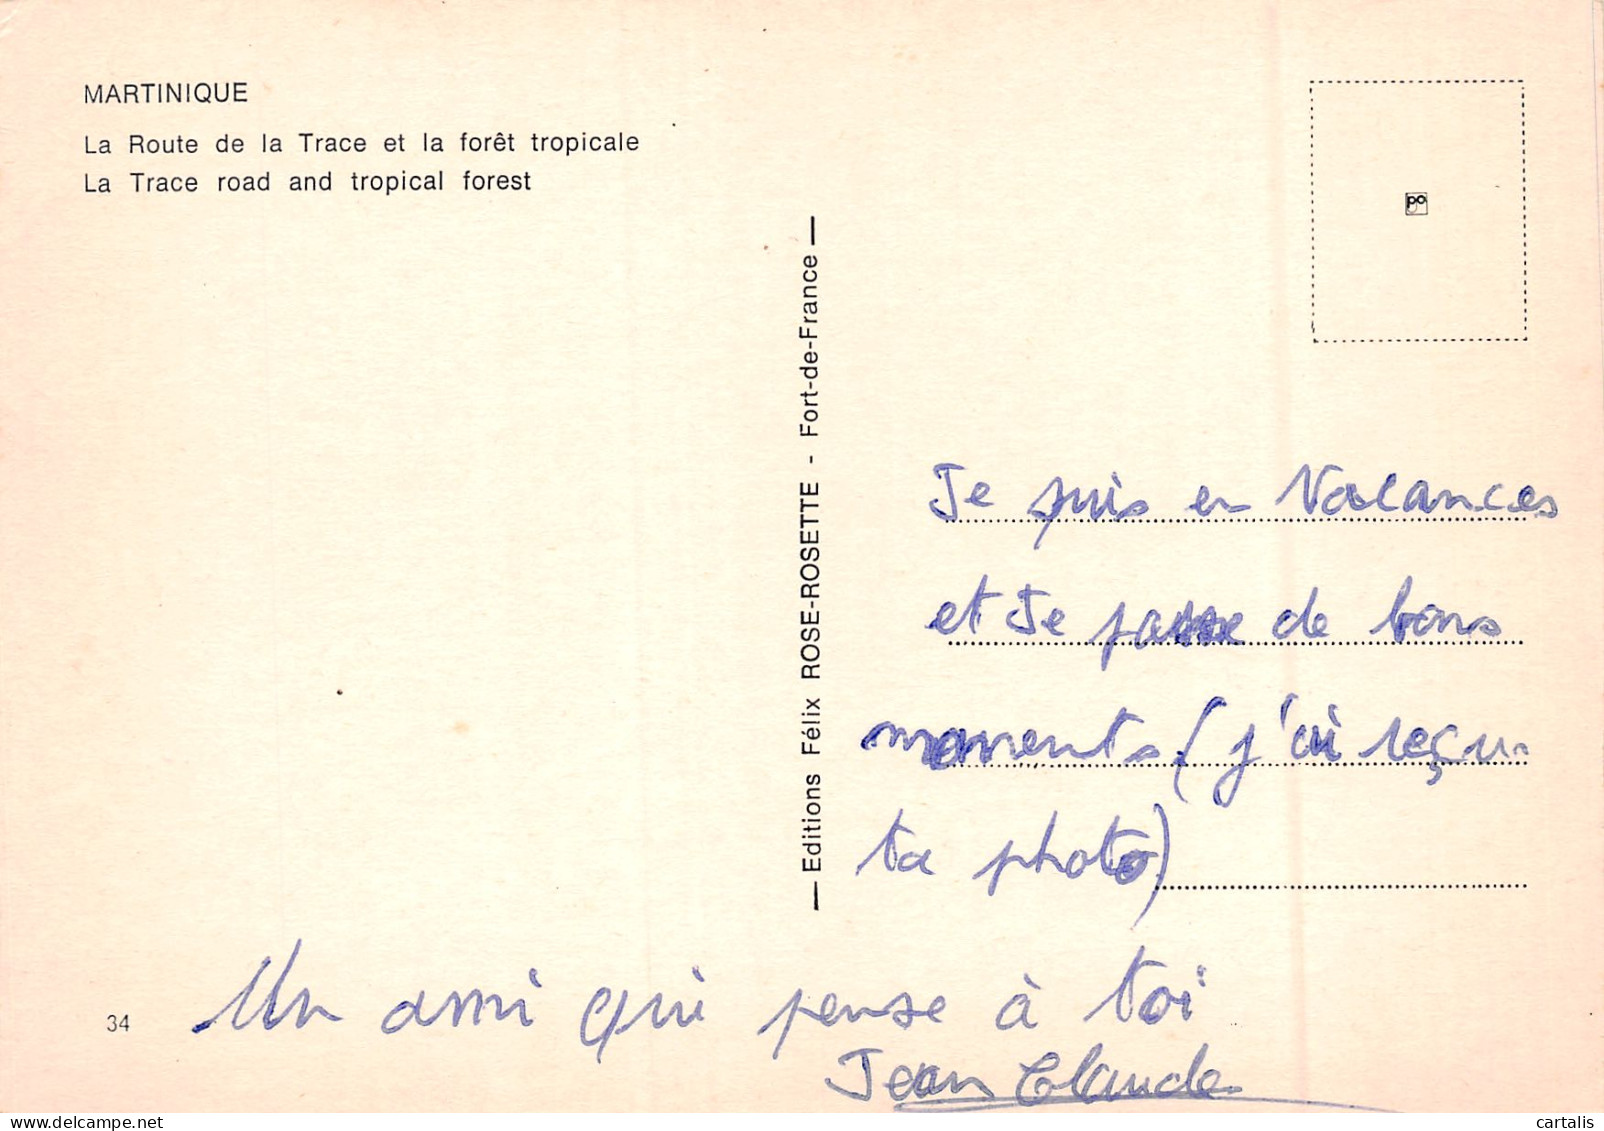 MARTINIQUE
La Route de la Trace et la forêt tropicale
La Trace road and tropical forest
Editions Félix ROSE-ROSETTE - Fort-de-France
po
Je suis en Vacances
et Je passe de bons
moments (j'ai reçu
ta photo)
Un ami qui pense à toi
Jean Claude
34
cartalis